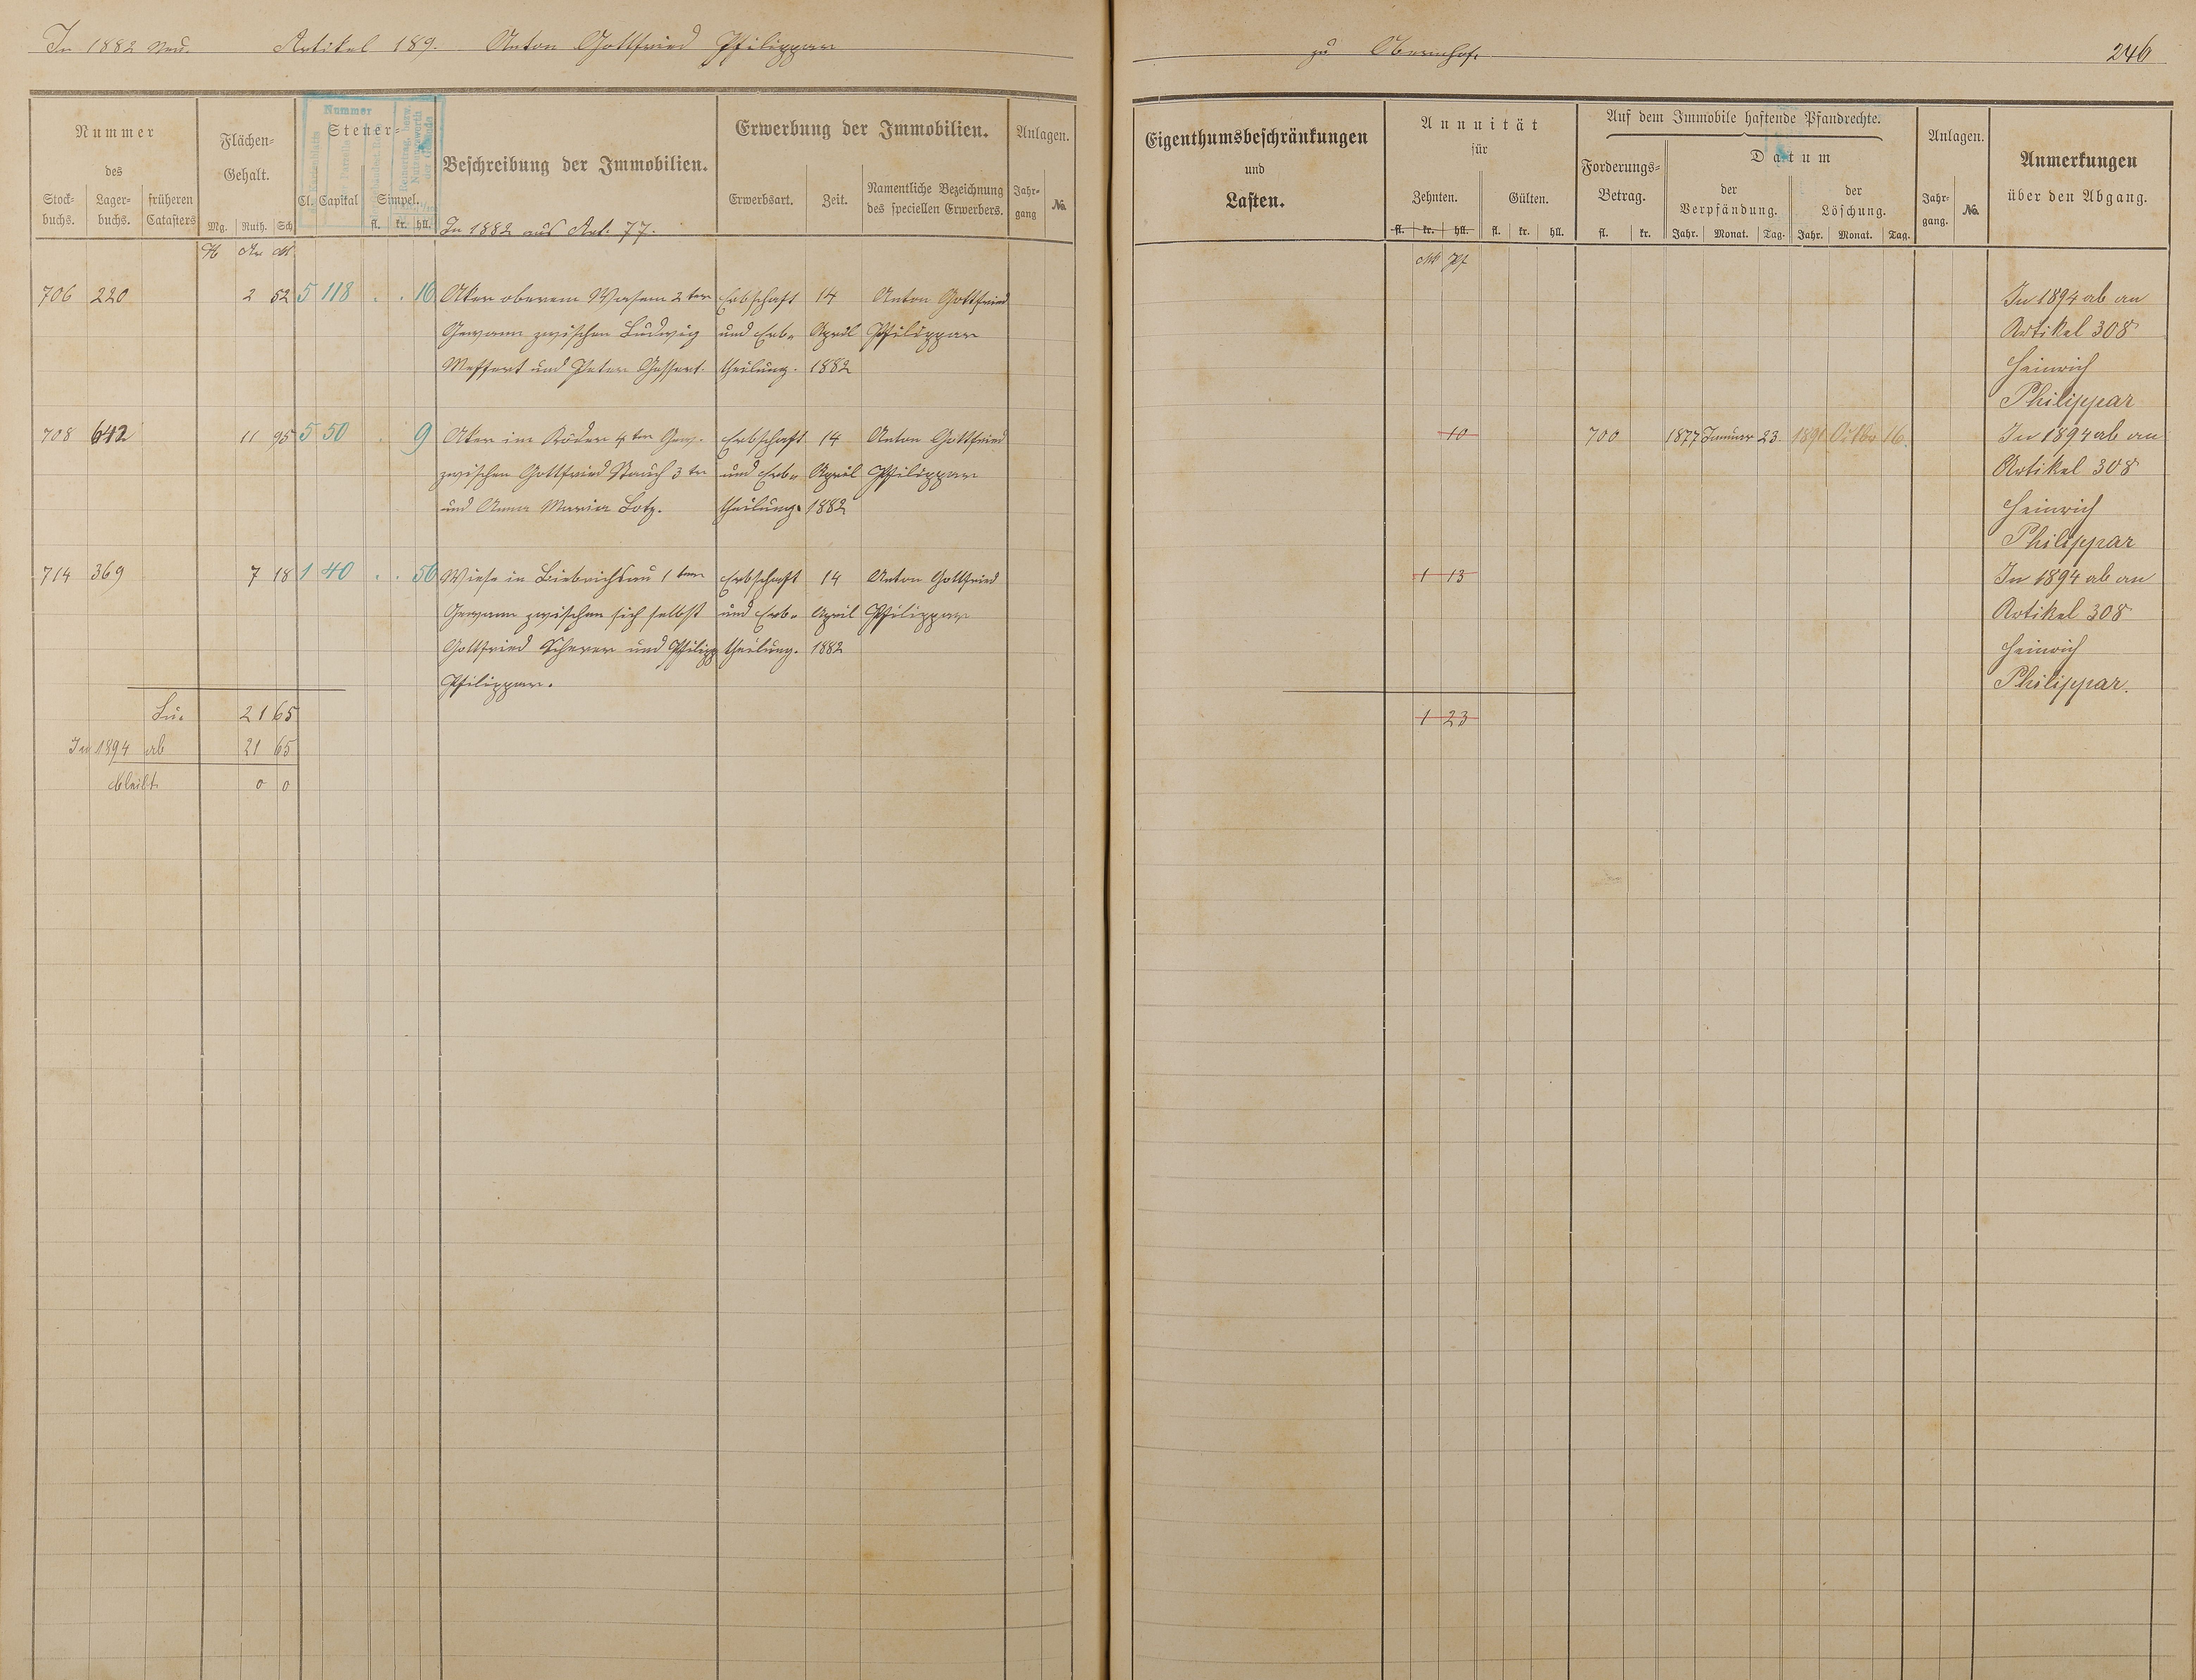 In 1882 neu. Artikel 189. Anton Gottfried Philippar
zu Obernhof. 246
Nummer
des
Stock-
buchs.
Lager-
buchs.
früheren
Catasters
Flächen-
Gehalt.
Mg. Ruth. Sch
Nummer
Steuer-
Cl. Capital Simpel.
fl. kr. hll.
Beschreibung der Immobilien.
In 1882 aus Art. 77.
Erwerbung der Immobilien.
Erwerbsart. Zeit.
Namentliche Bezeichnung
des speciellen Erwerbers.
Anlagen.
Jahr-
gang
No.
Eigenthumsbeschränkungen
und
Lasten.
Annuität
für
Zehnten. Gülten.
fl. kr. hll. fl. kr. hll.
Auf dem Immobile haftende Pfandrechte.
Forderungs-
Betrag.
fl. kr.
Datum
der
Verpfändung.
der
Löschung.
Jahr. Monat. Tag. Jahr. Monat. Tag.
Anlagen.
Jahr-
gang.
No.
Anmerkungen
über den Abgang.
H Ar M
M Pf
706 220 2 52 5 118 . . 16 Aker oberem Wasem 2ter Erbschaft 14 Anton Gottfried In 1894 ab an
Gewann zwischen Ludwig und Erb- April Philippar Artikel 308
Meffert und Peter Gessert. theilung. 1882 Heinrich
Philippar
708 642 11 95 5 50 . 9 Aker im Röder 4ter Gew. Erbschaft 14 Anton Gottfried 10 700 1877 Januar 23. 1891 Oktbr 16. In 1894 ab an
zwischen Gottfried Bauch 3ter und Erb- April Philippar Artikel 308
und Anna Maria Lotz. theilung. 1882 Heinrich
Philippar
714 369 7 18 1 40 . . 56 Wiese in Biebrichsau 1ter Erbschaft 14 Anton Gottfried 1 13 In 1894 ab an
Gewann zwischen sich selbst und Erb- April Philippar Artikel 308
Gottfried Scherer und Philipp theilung. 1882 Heinrich
Philippar. Philippar.
Su. 21 65 1 23
In 1894 ab 21 65
bleibt 0 0